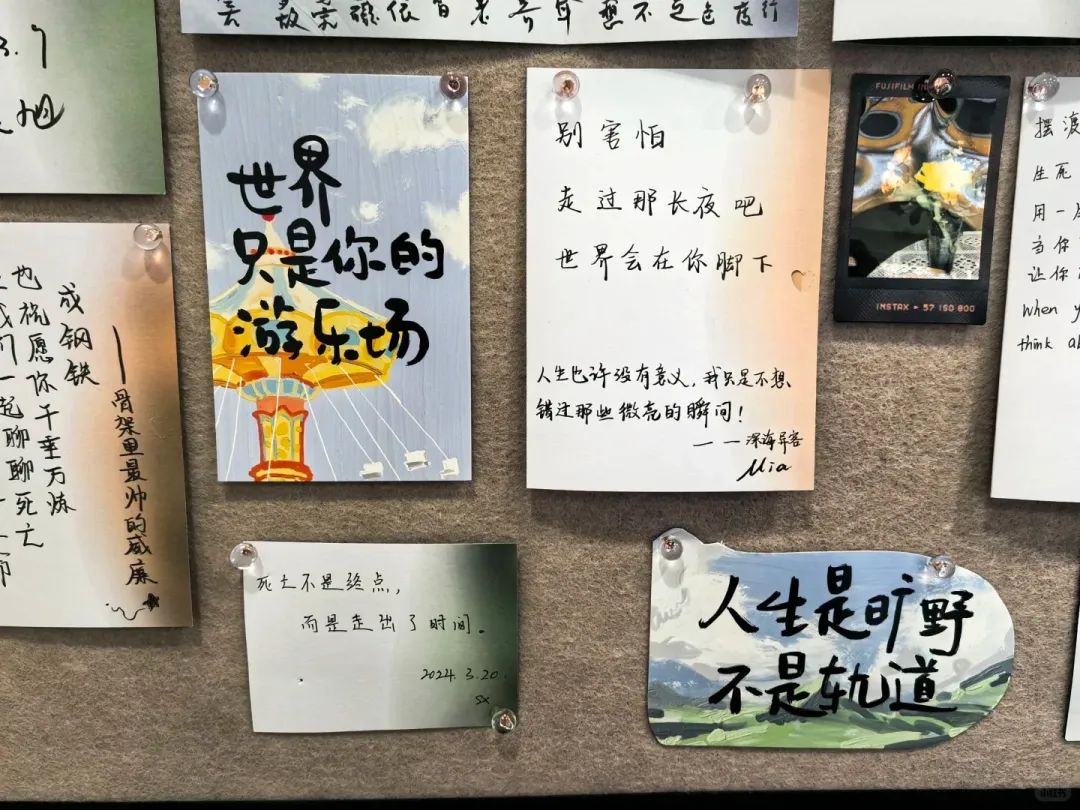 3.9
旭
成钢铁
也祝愿你千垂万炼
我们一起聊聊死亡
——骨架里最帅的威廉
世界
只是你的
游乐场
别害怕
走过那长夜吧
世界会在你脚下
人生也许没有意义，我只是不想
错过那些微亮的瞬间！
——深海异客
Mia
FUJIFILM IN
INSTAX ▸ 57 ISO 800
摆渡
生死
用一
当你
让你
when y
think a
死亡不是终点，
而是走出了时间。
2024.3.20.
SX
人生是旷野
不是轨道
小红书